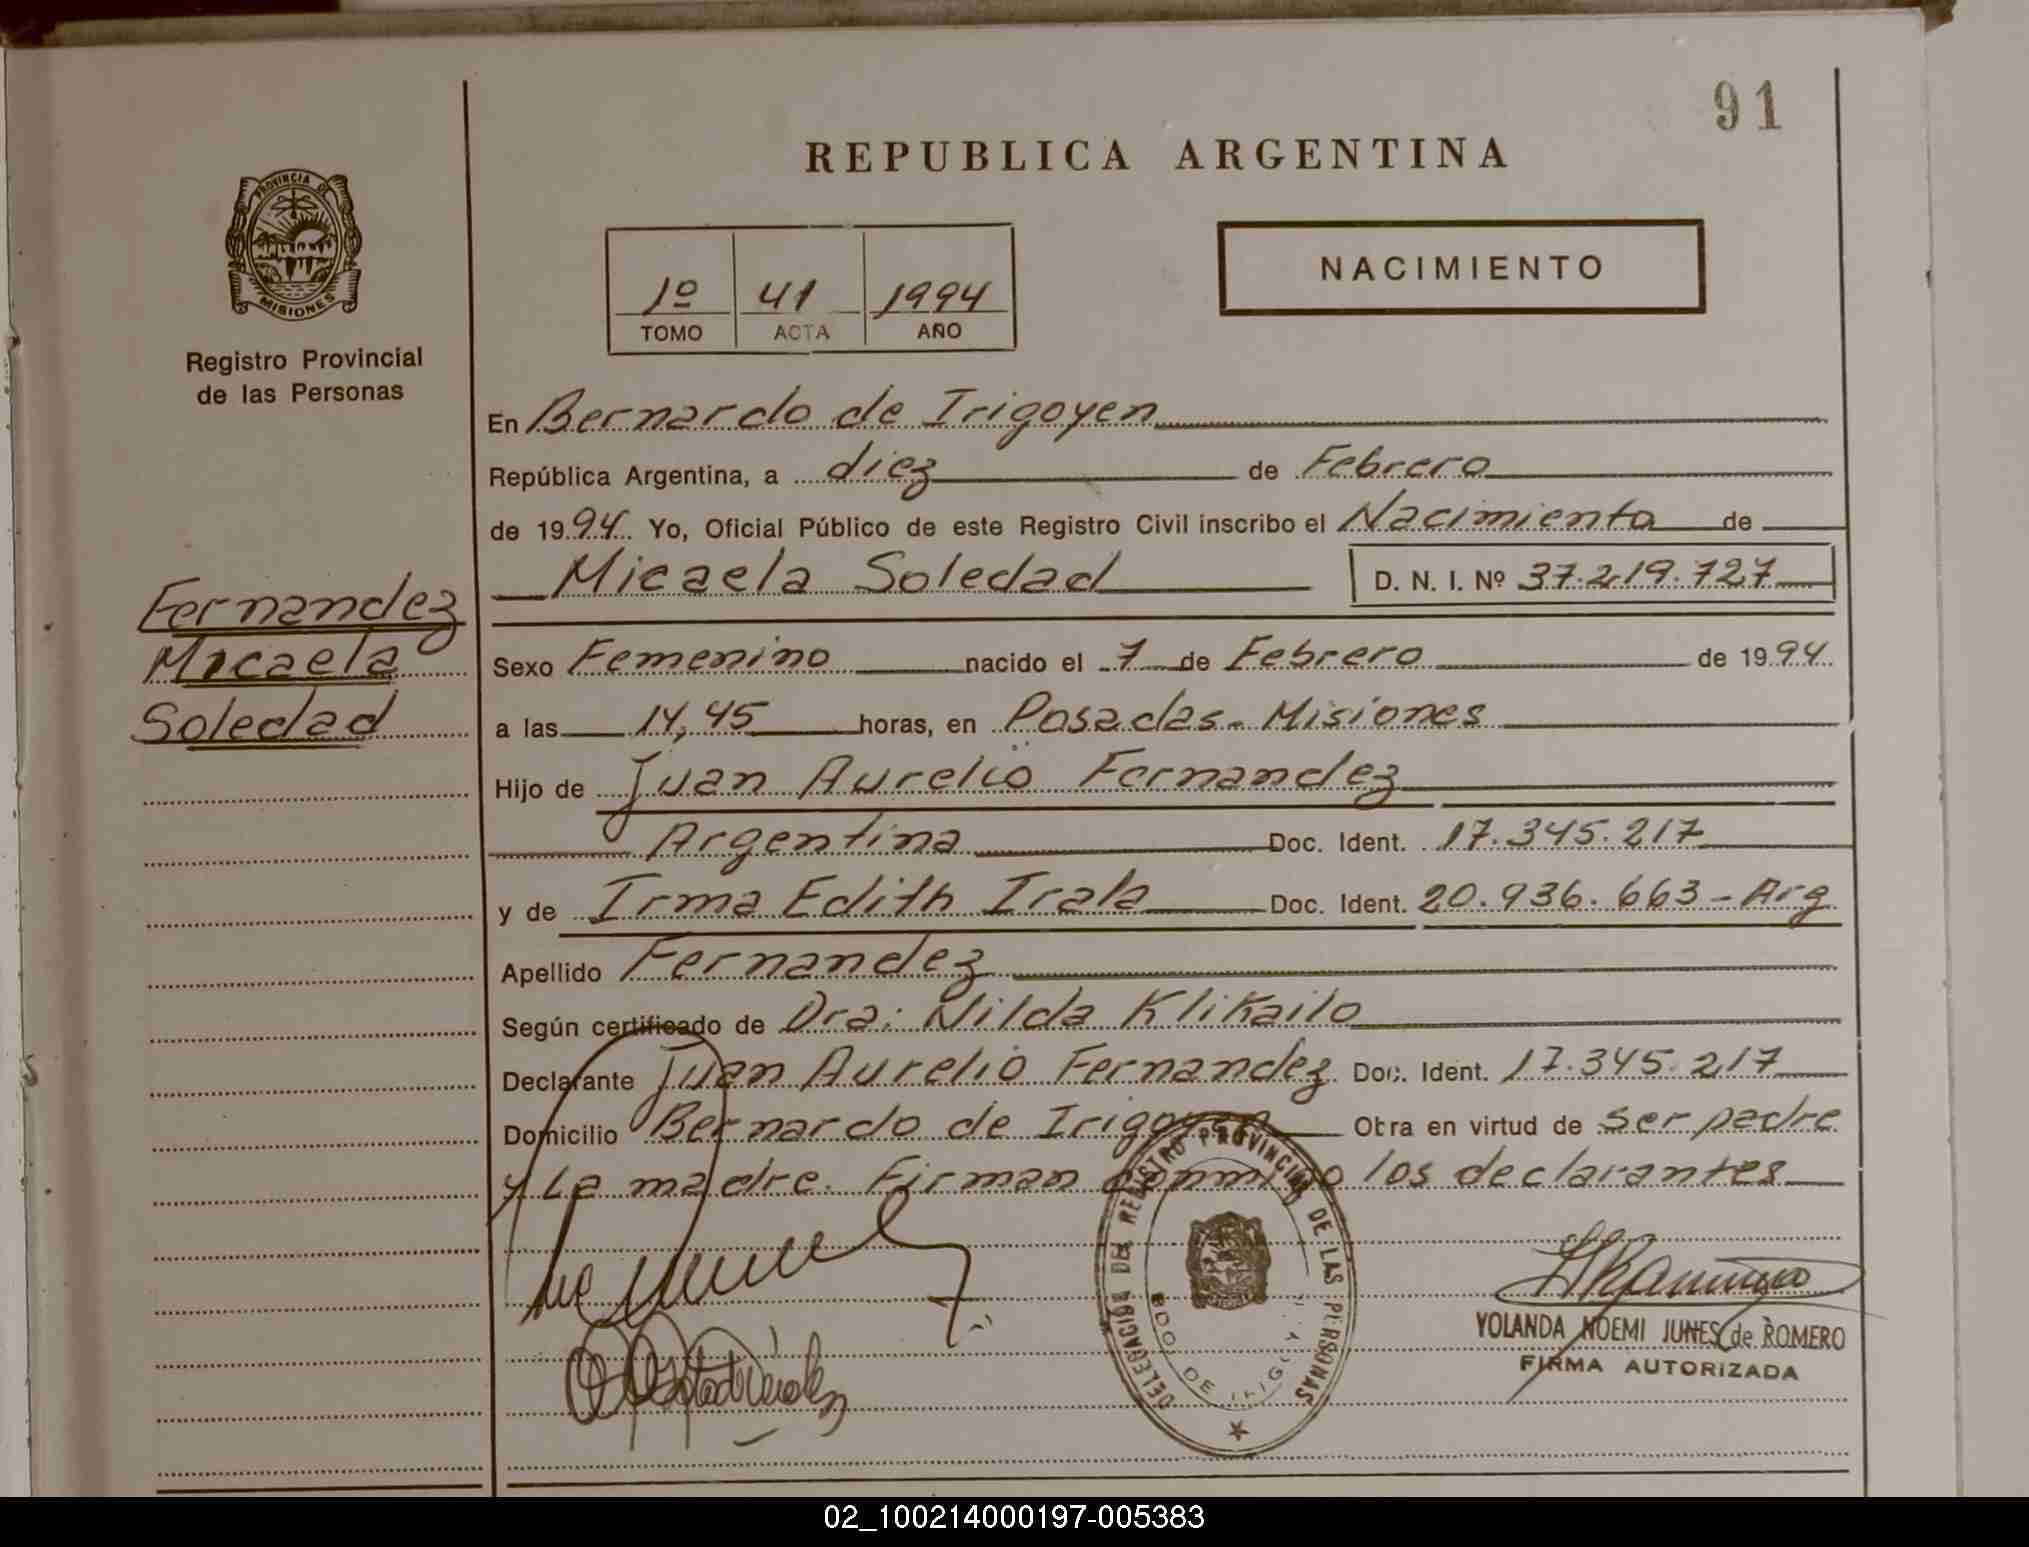 91
REPUBLICA ARGENTINA
PROVINCIA DE
MISIONES
Registro Provincial
de las Personas
1º 41 1994
TOMO ACTA AÑO
NACIMIENTO
En Bernardo de Irigoyen
República Argentina, a diez de Febrero
de 1994. Yo, Oficial Público de este Registro Civil inscribo el Nacimiento de
Micaela Soledad D. N. I. Nº 37.219.727
Fernandez
Micaela
Soledad
Sexo Femenino nacido el 7 de Febrero de 1994.
a las 14,45 horas, en Posadas - Misiones
Hijo de Juan Aurelio Fernandez
Argentina Doc. Ident. 17.345.217
y de Irma Edith Irala Doc. Ident. 20.936.663 - Arg
Apellido Fernandez
Según certificado de Dra: Nilda Klikailo
Declarante Juan Aurelio Fernandez Doc. Ident. 17.345.217
Domicilio Bernardo de Irigoyen Obra en virtud de ser padre
y La madre. Firman conmigo los declarantes
DELEGACION DEL REGISTRO PROVINCIAL DE LAS PERSONAS
BDO. DE IRIGOYEN
YOLANDA NOEMI JUNES de ROMERO
FIRMA AUTORIZADA
02_100214000197-005383